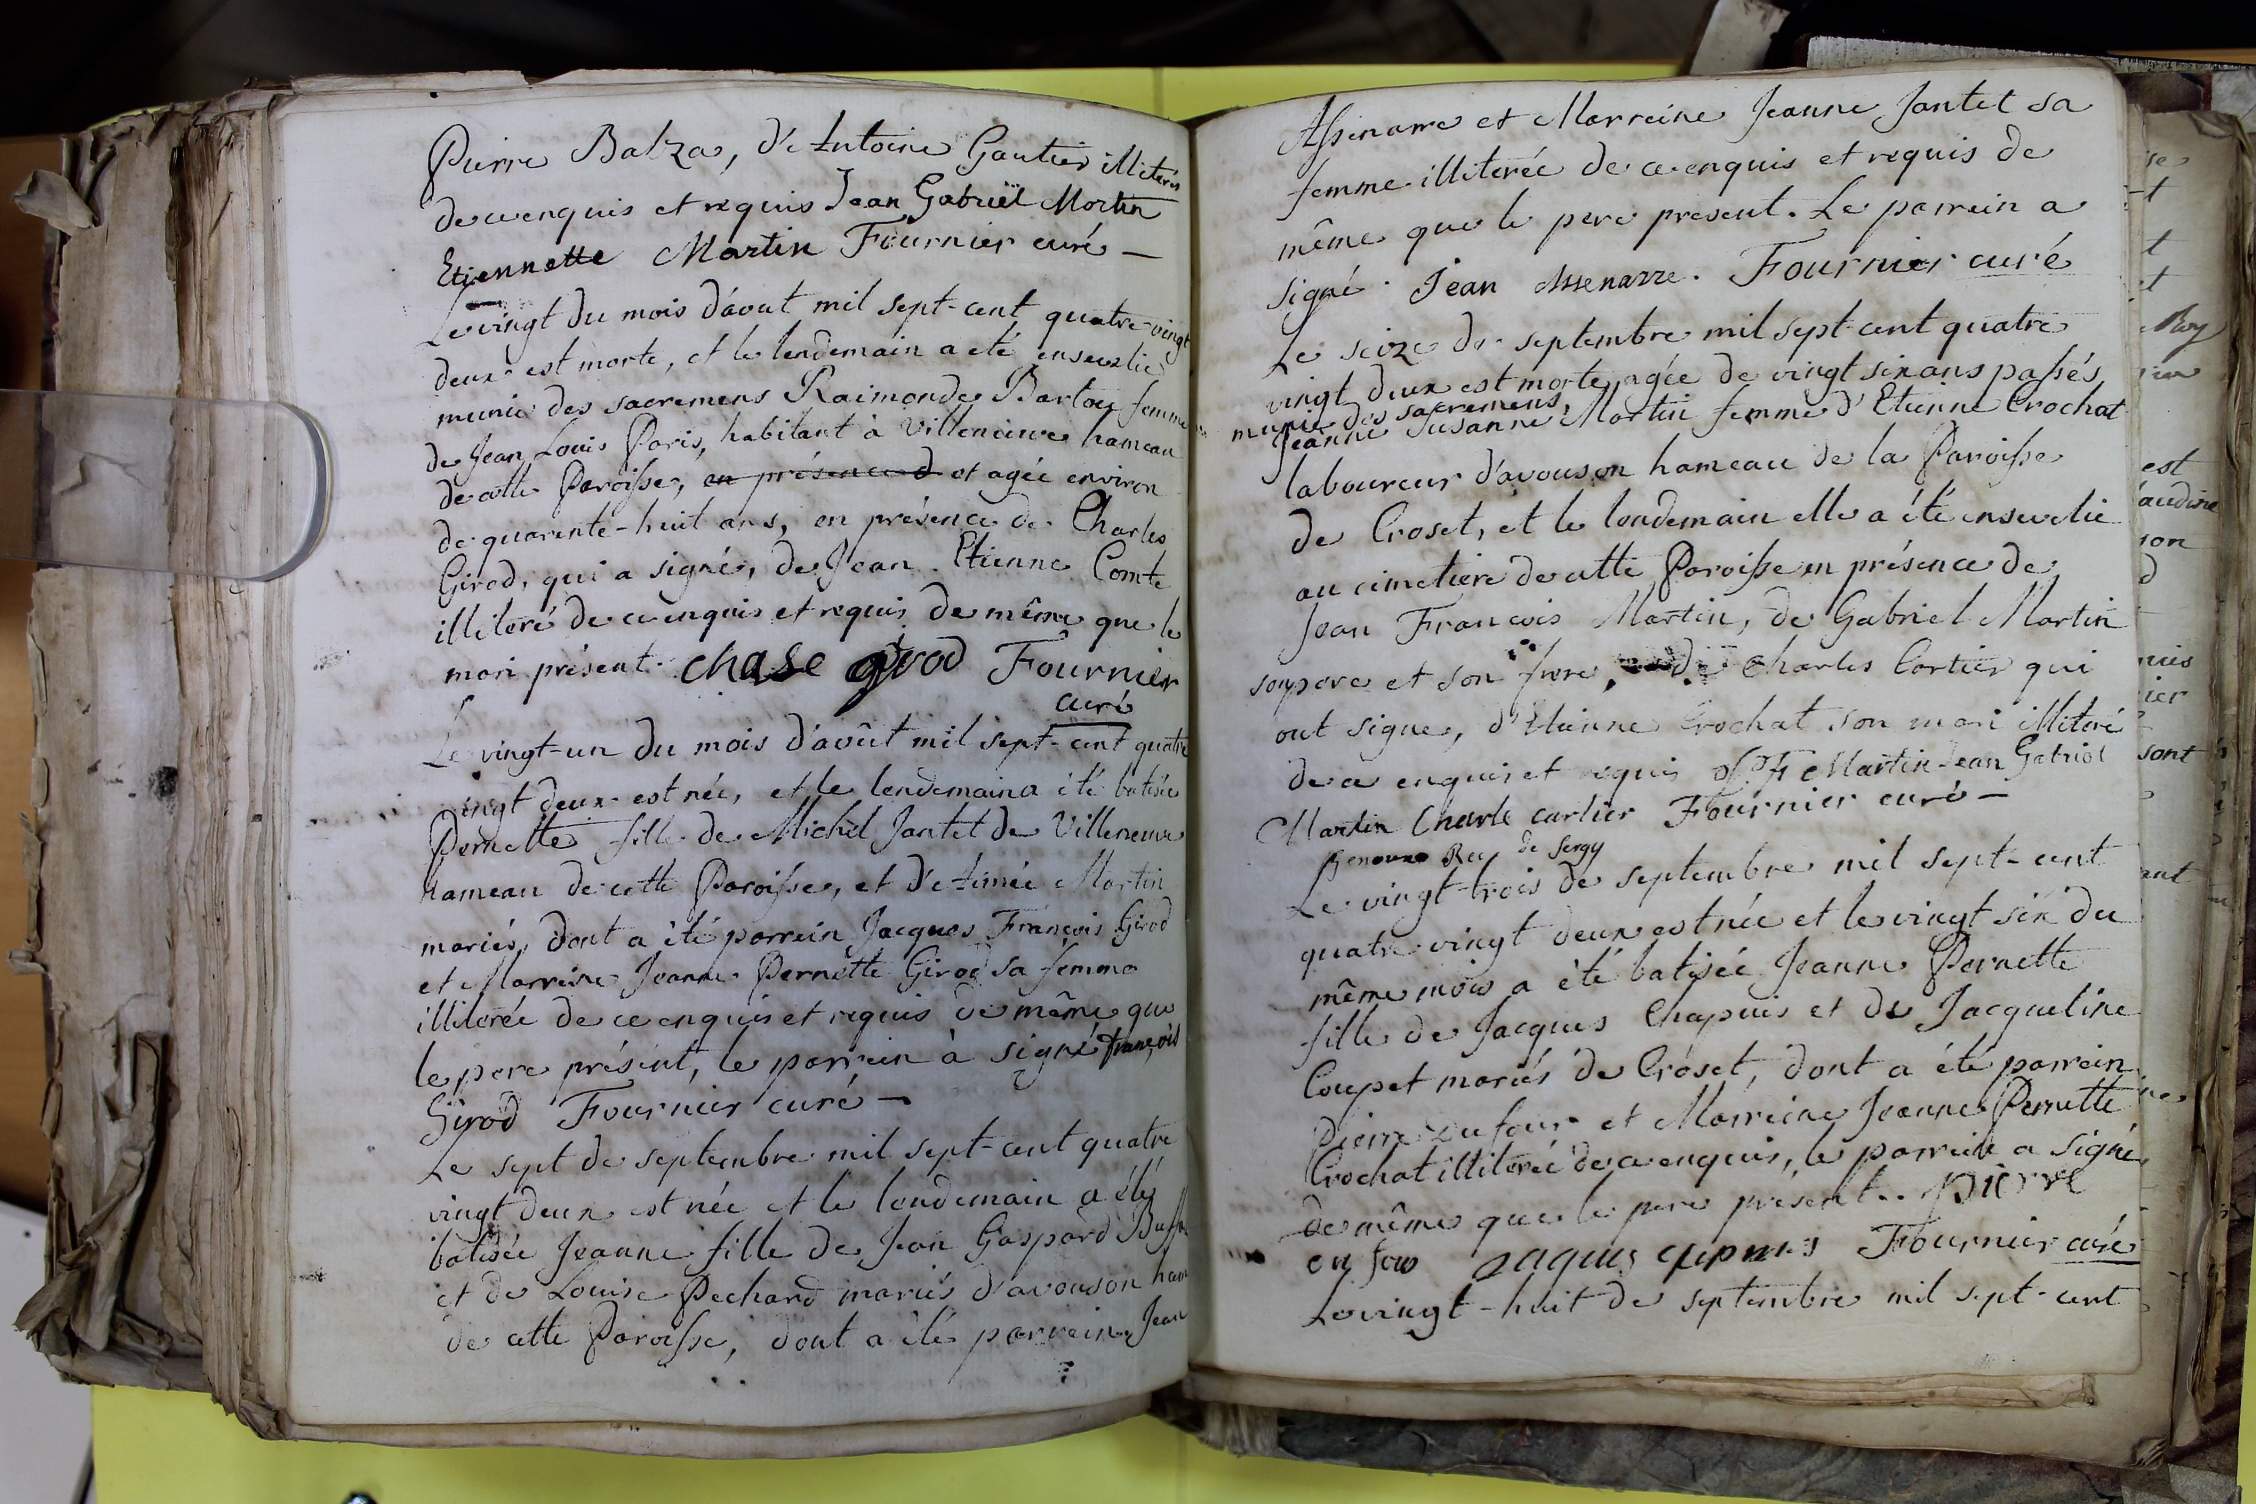 Pierre Balza, d'Antoine Gautier illiterés
de ce enquis et requis Jean Gabriël Martin
Etiennette Martin Fournier curé —
Le vingt du mois d'avout mil sept-cent quatre-vingt
deux est morte, et le lendemain a eté ensevelie
munie des sacremens Raimonde Bartoy femme
de Jean Louis Paris, habitant à Villeneuve hameau
de cette Paroisse, en présence d et agée environ
de quarente-huit ans, en présence de Charles
Girod, qui a signé, de Jean Etienne Comte
illiteré de ce enquis et requis de même que le
mari présent. chasle girod Fournier
curé
Le vingt-un du mois d'avoût mil sept-cent quatre
vingt deux est née, et le lendemain a été batisée
Pernette fille de Michel Jantet de Villeneuve
hameau de cette Paroisse, et d'Aimée Martin
mariés, dont a été parrein Jacques François Girod
et Marreine Jeanne Pernette Girod sa femme
illiterée de ce enquis et requis de même que
le pere présent, le parrein à signé françois
Girod Fournier curé —
Le sept de septembre mil sept-cent quatre
vingt deux est née et le lendemain a été
batisée Jeanne fille de Jean Gaspard
et de Louise Pechard mariés d'avouson ham
de cette Paroisse, dont a été parrein Jean
Assenarre et Marreine Jeanne Jantet sa
femme illiterée de ce enquis et requis de
même que le pere present. Le parrein a
signé. Jean Assenarre. Fournier curé
Le seize de septembre mil sept cent quatre
vingt deux est morte, agée de vingt six ans passés
munie des sacremens,
Jeanne Susanne Martin femme d'Etienne Crochat
laboureur d'avouson hameau de la Paroisse
de Croset, et le lendemain elle a été ensevelie
au cimetiere de cette Paroisse en présence de
Jean François Martin, de Gabriel Martin
son pere et son frere, de Charles Cartier qui
ont signe, d'Etienne Crochat son mari illiteré
de ce enquis et requis J F Martin Jean Gabriel
Martin Charle cartier Fournier curé —
Rey de Sergy
Le vingt-trois de septembre mil sept-cent
quatre-vingt deux est née et le vingt six du
même mois a été batisée Jeanne Pernette
fille de Jacques Chapuis et de Jacqueline
Coupet mariés de Croset, dont a été parrein
Pierre Dufour et Marreine Jeanne Pernette
Crochat illiterée de ce enquis, le parrein a signé
de même que le pere présent.. pierre
Fournier curé
Le vingt-huit de septembre mil sept-cent